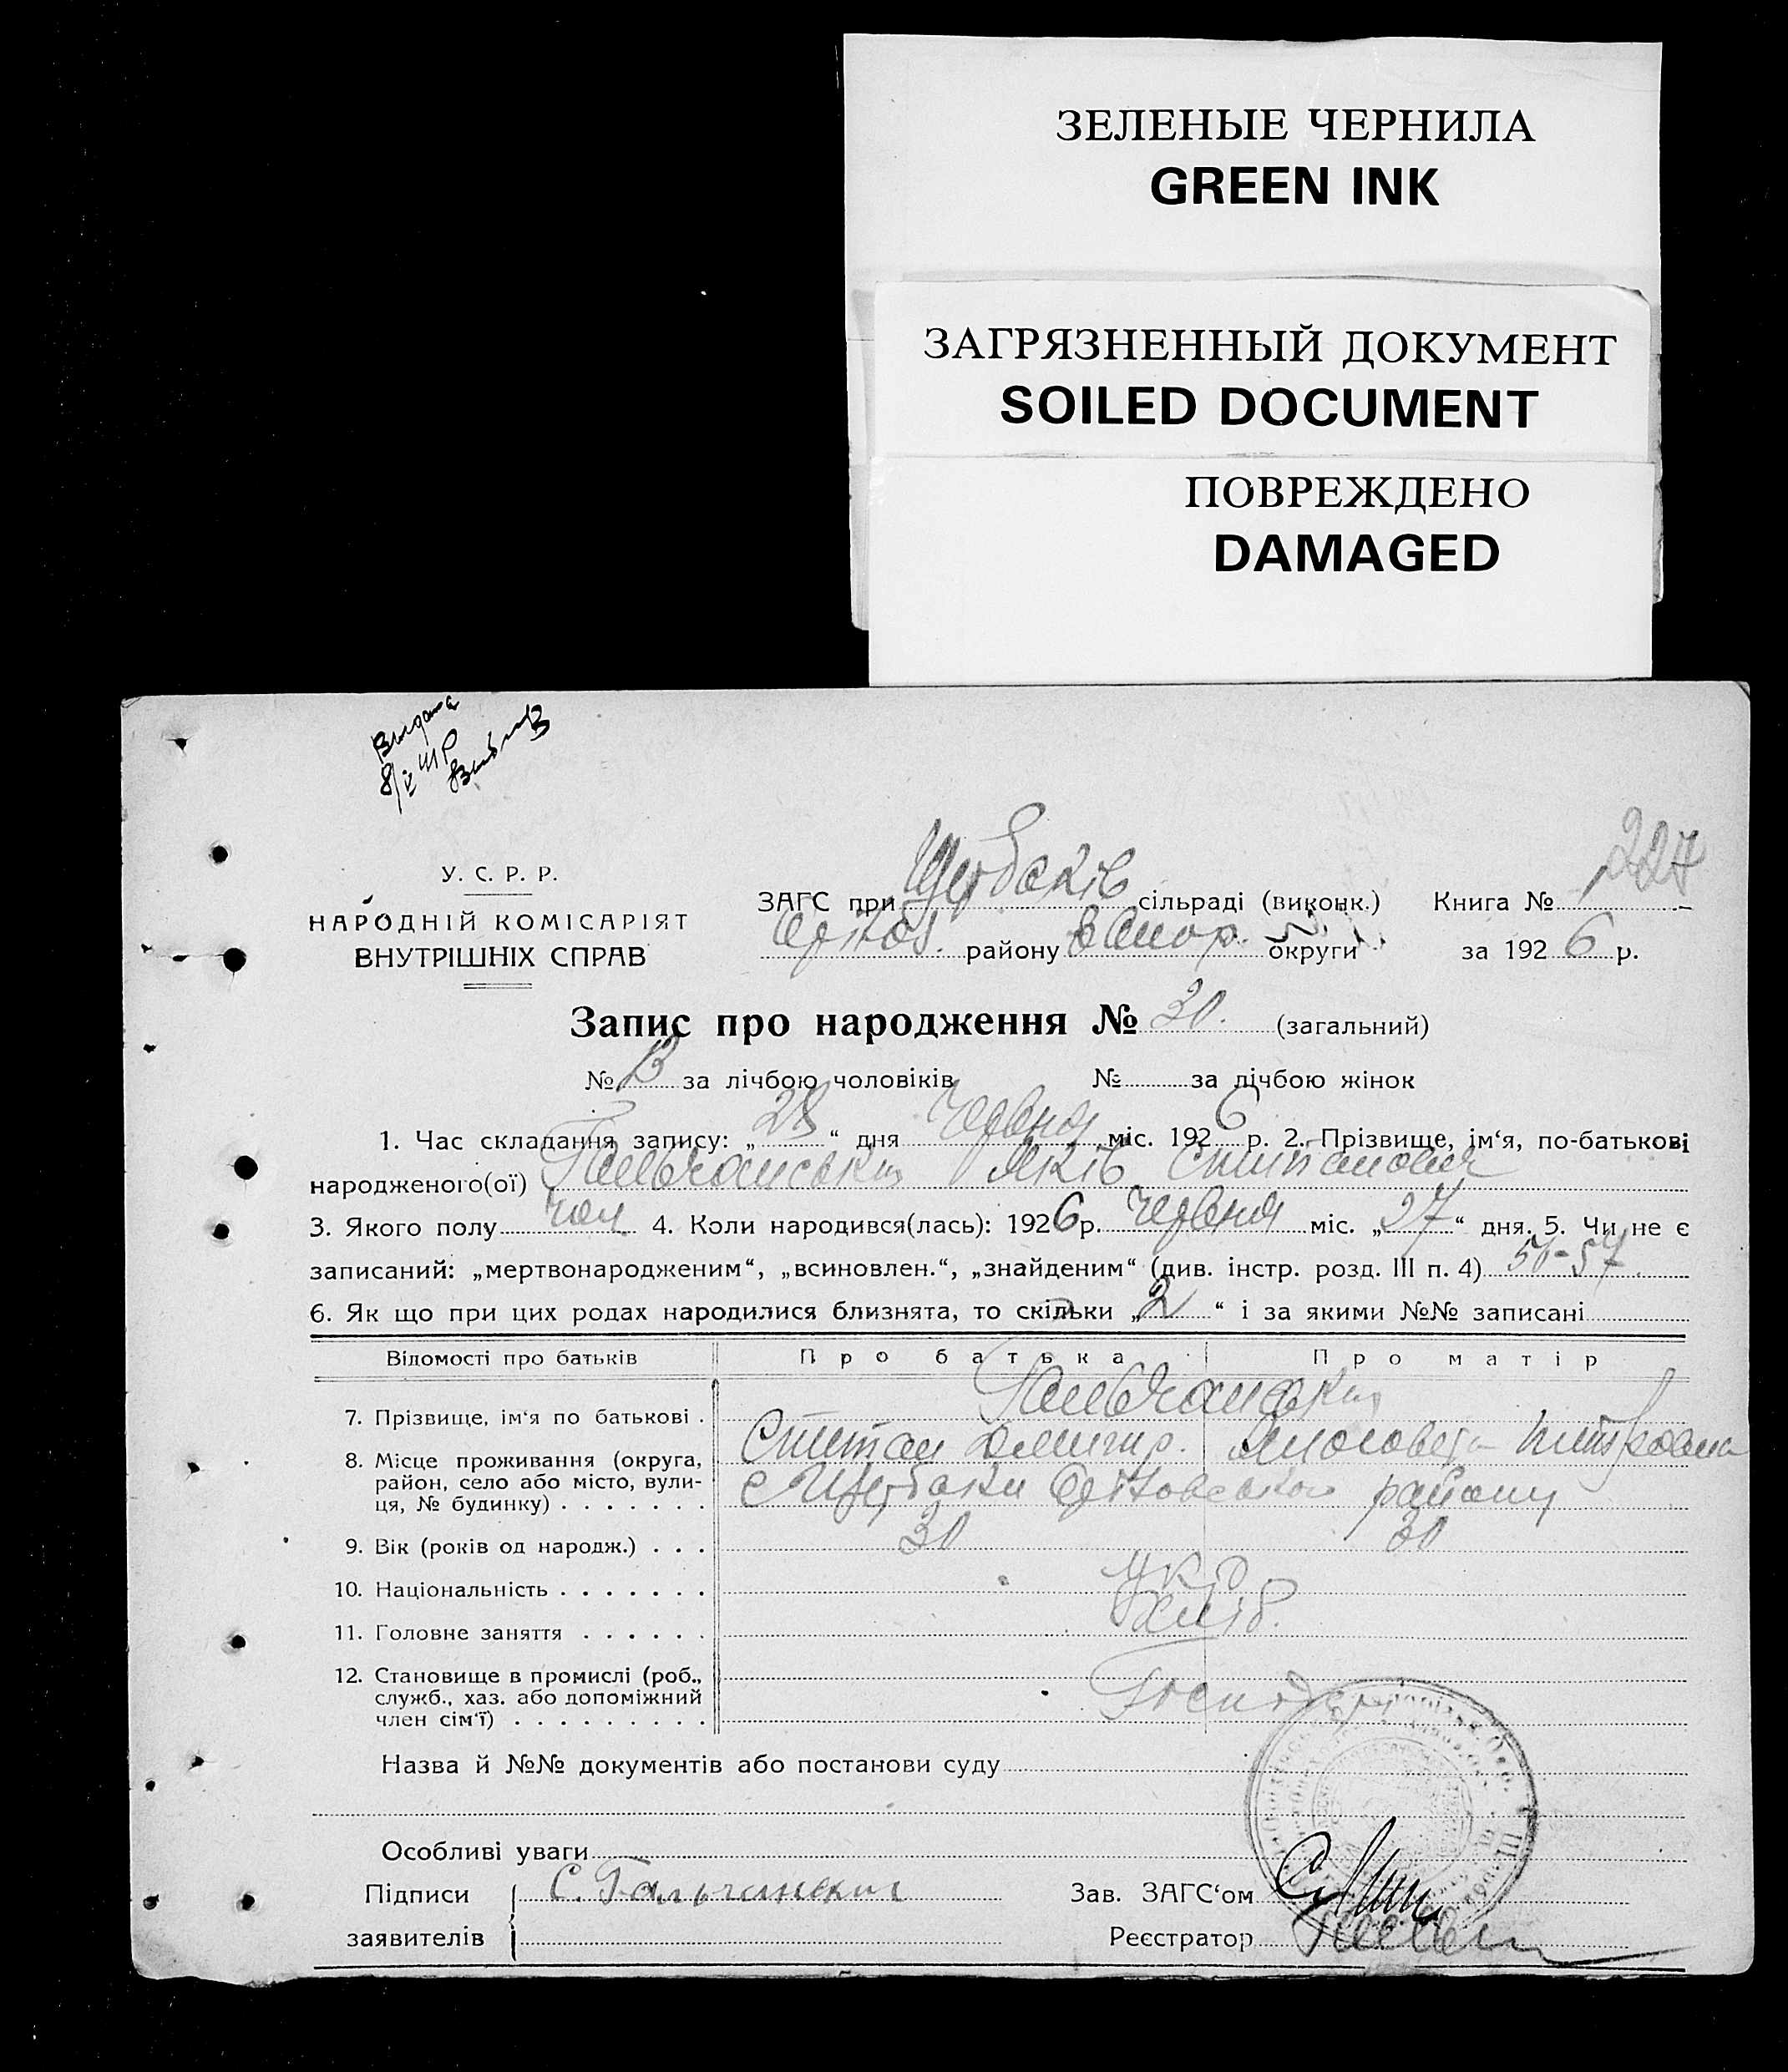 ЗЕЛЕНЫЕ ЧЕРНИЛА
GREEN INK
ЗАГРЯЗНЕННЫЙ ДОКУМЕНТ
SOILED DOCUMENT
ПОВРЕЖДЕНО
DAMAGED
У. С. Р. Р.
НАРОДНІЙ КОМІСАРІЯТ
ВНУТРІШНІХ СПРАВ
227
ЗАГС при Щербаків сільраді (виконк.) Книга №
району округи за 1926 р.
Запис про народження № 30. (загальний)
№ 13 за лічбою чоловіків № за лічбою жінок
1. Час складання запису: „28“ дня Червня міс. 1926 р. 2. Прізвище, ім‘я, по-батькові
народженого(ої) Гальчанський Яків
3. Якого полу чол 4. Коли народився(лась): 1926 р. Червня міс. „27“ дня. 5. Чи не є
записаний: „мертвонародженим“, „всиновлен.“, „знайденим“ (див. інстр. розд. III п. 4)
6. Як що при цих родах народилися близнята, то скільки „2“ і за якими №№ записані
Відомості про батьків Про батька Про матір
7. Прізвище, ім‘я по батькові .
8. Місце проживання (округа,
район, село або місто, вули-
ця, № будинку) . . . . . . . с Щербаки району
9. Вік (років од народж.) . . . 30 30
10. Національність . . . . . . . укр
11. Головне заняття . . . . . . хліб.
12. Становище в промислі (роб.,
служб., хаз. або допоміжний
член сім‘ї) . . . . . . . . . Господар
Назва й №№ документів або постанови суду
Особливі уваги
Підписи С. Гальчанский Зав. ЗАГС‘ом
заявителів Реєстратор